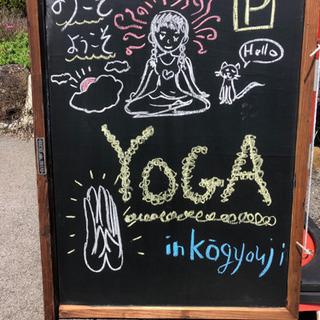 ようこそ
ようこそ
P
Hello
YOGA
in kōgyouji